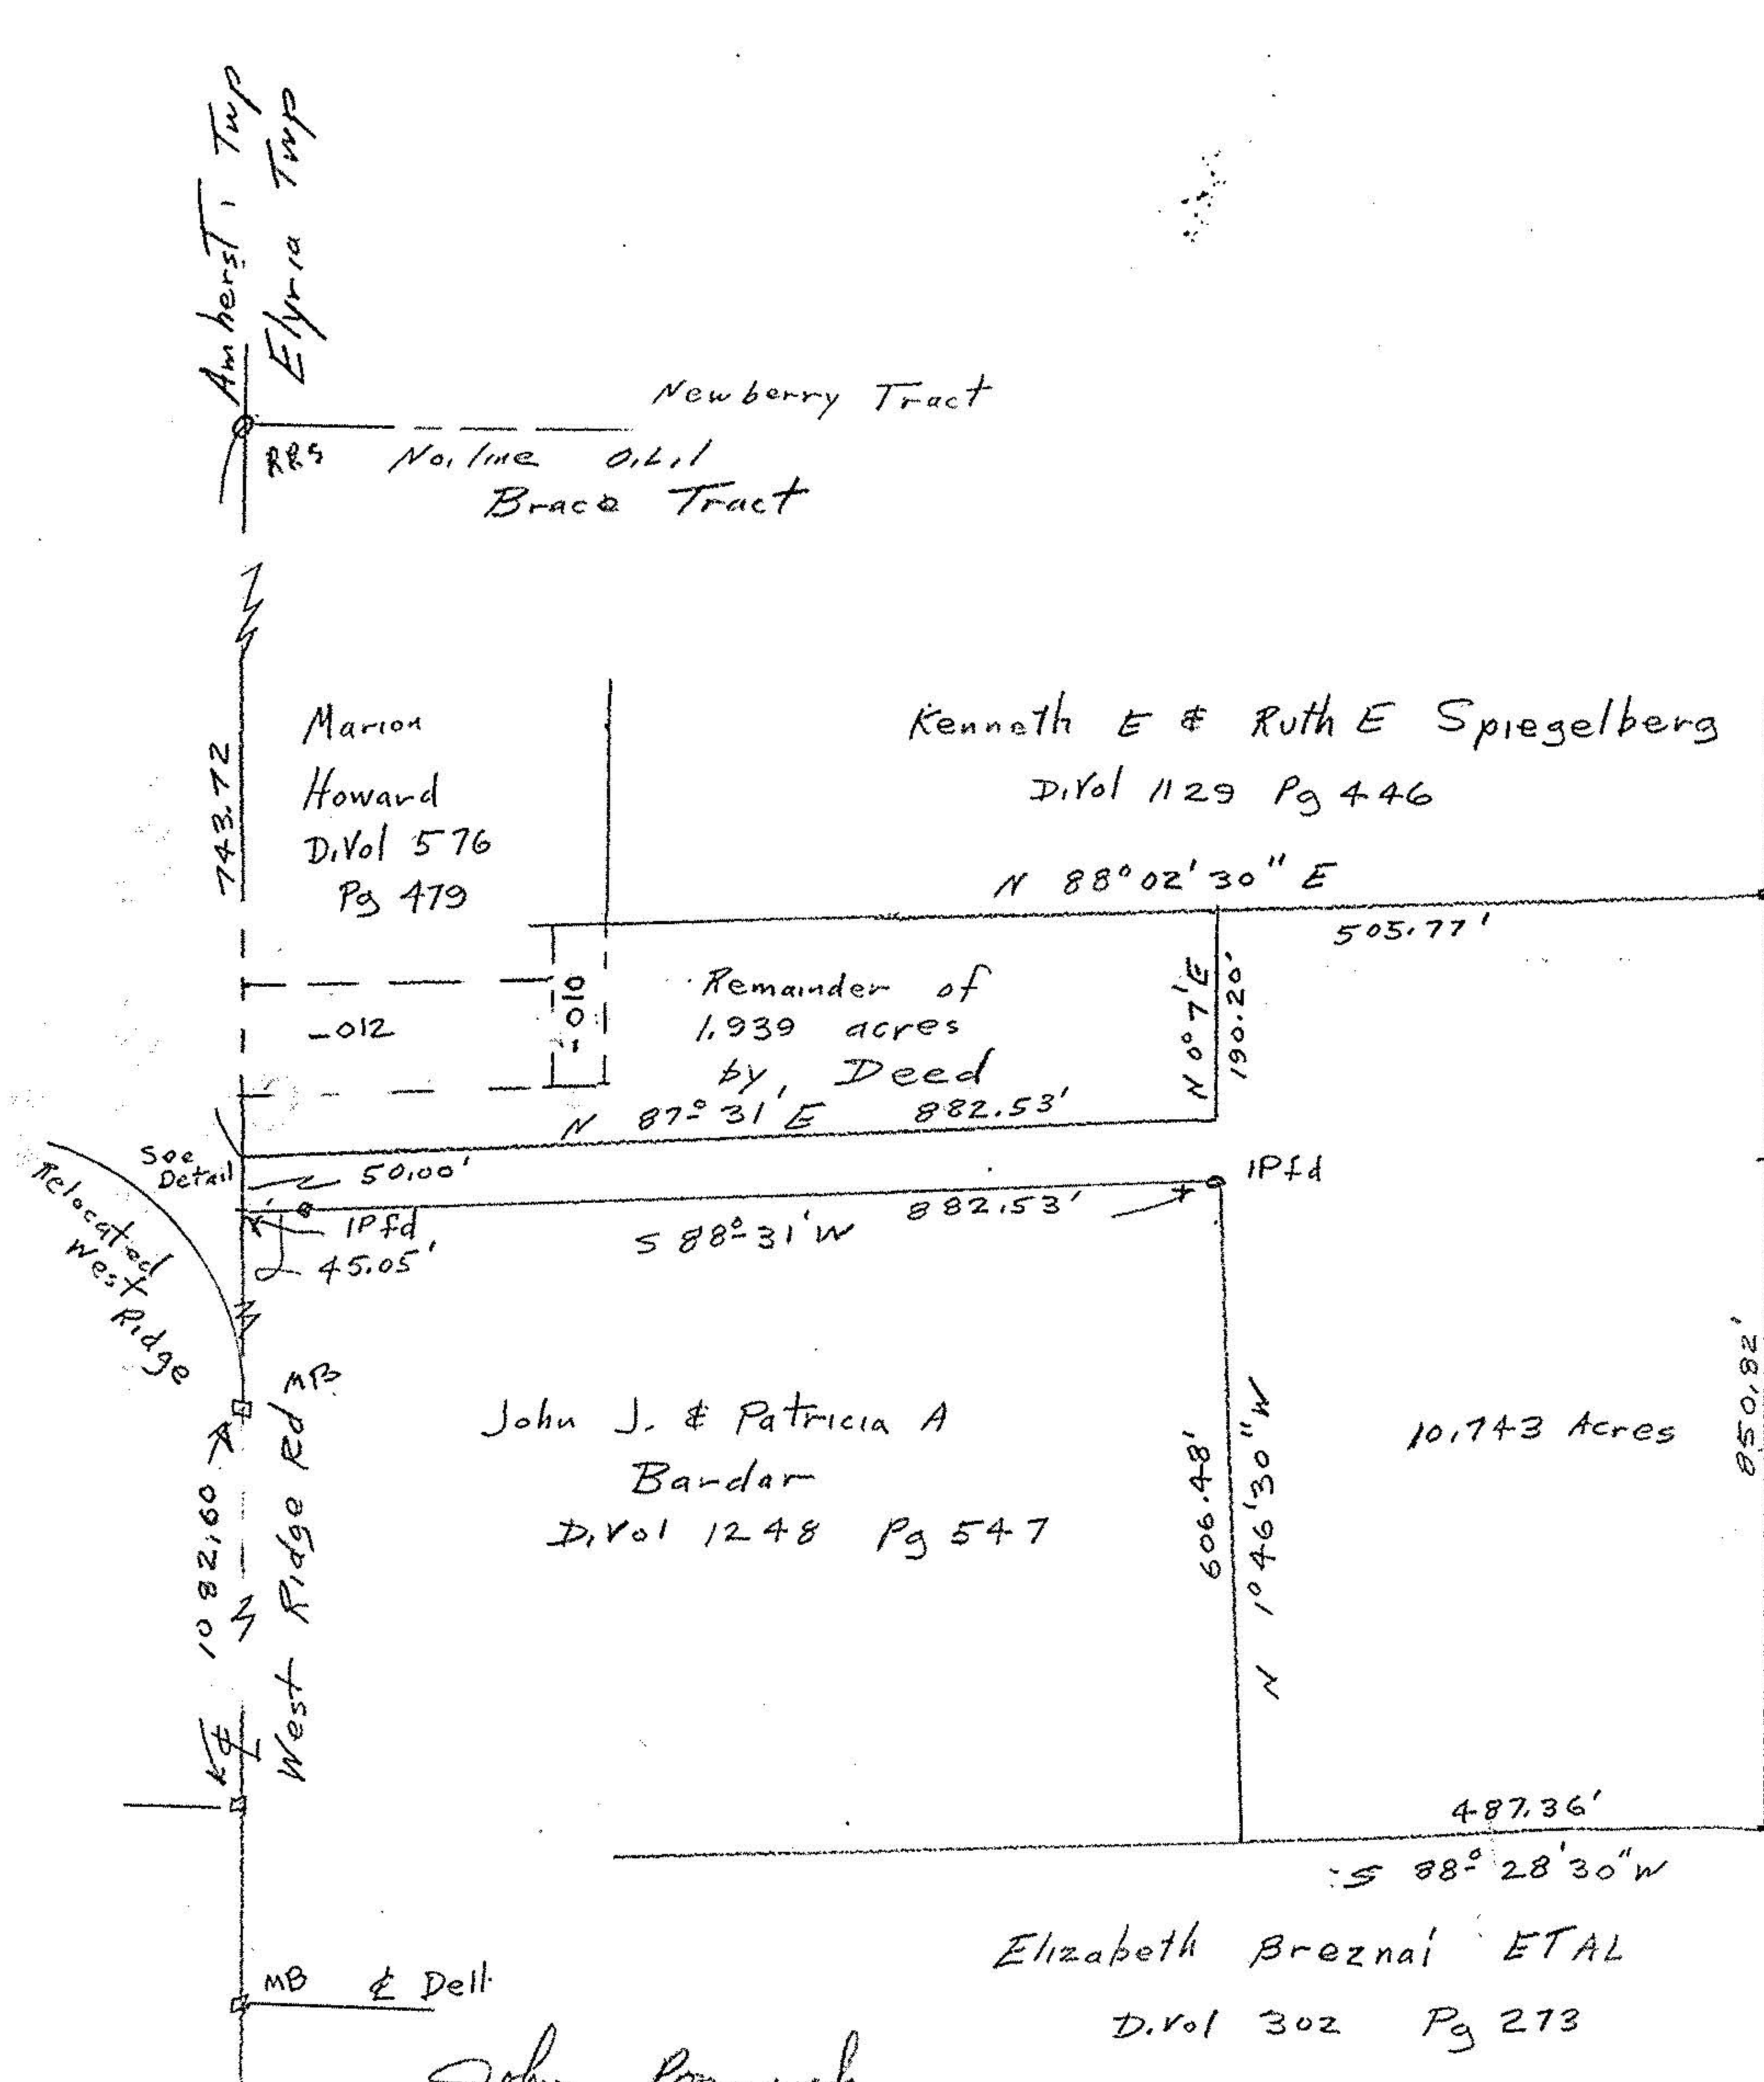 Amherst Twp
Elyria Twp
Newberry Tract
RRS No. line O.L. 1
Brace Tract
743.72
Marion
Howard
D. Vol 576
Pg 479
Kenneth E & Ruth E Spiegelberg
D. Vol 1129 Pg 446
N 88° 02' 30" E
505.77'
-012
-010
Remainder of
1.939 acres
by, Deed
N 0° 7' E
190.20'
N 87° 31' E 882.53'
See
Detail
50.00'
IPfd
882.53'
S 88° 31' W
IPfd
45.05'
Relocated
West
Ridge
MB
1082.60
West Ridge Rd
John J. & Patricia A
Bardar
D. Vol 1248 Pg 547
606.48'
N 1° 46' 30" W
10.743 Acres
850.82'
487.36'
S 88° 28' 30" W
Elizabeth Breznai ETAL
D. Vol 302 Pg 273
MB ℄ Dell
John